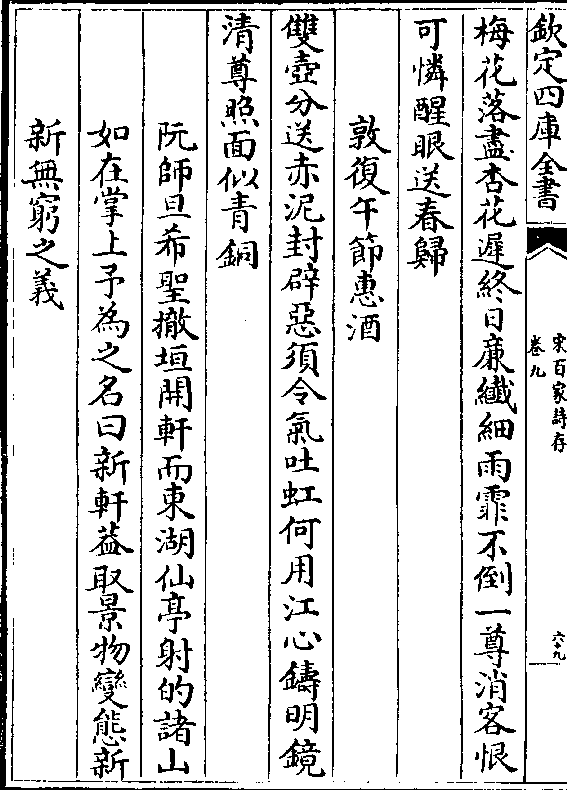 欽定四庫全書
宋百家詩存
卷九
六十九
梅花落盡杏花遲終日廉纖細雨霏不倒一尊消客恨
可憐醒眼送春歸
敦復午節惠酒
雙壺分送赤泥封辟惡須令氣吐虹何用江心鑄明鏡
清尊照面似青銅
阮師旦希聖撤垣開軒而東湖仙亭射的諸山
如在掌上予為之名曰新軒葢取景物變態新
新無窮之義